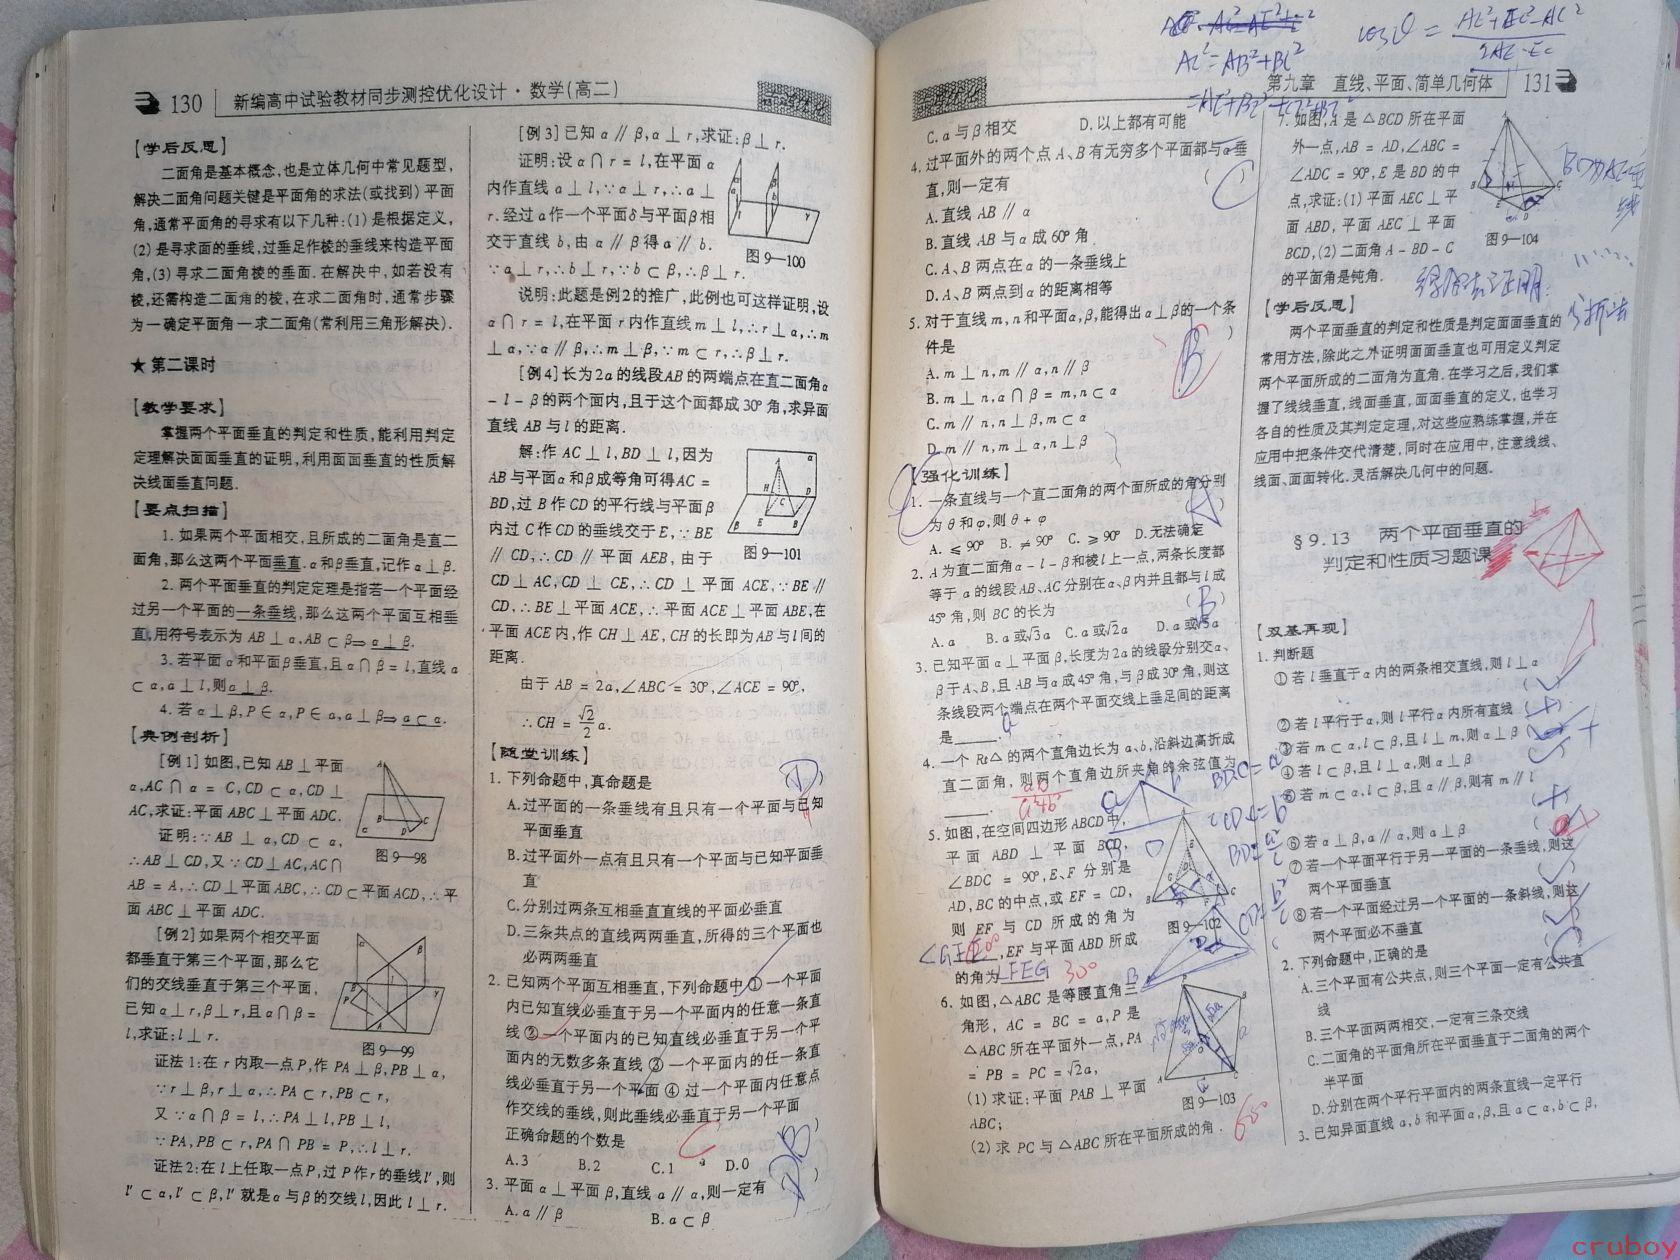 130 新编高中试验教材同步测控优化设计·数学(高二)
【学后反思】
二面角是基本概念,也是立体几何中常见题型,
解决二面角问题关键是平面角的求法(或找到)平面
角,通常平面角的寻求有以下几种:(1)是根据定义,
(2)是寻求面的垂线,过垂足作棱的垂线来构造平面
角,(3)寻求二面角棱的垂面.在解决中,如若没有
棱,还需构造二面角的棱,在求二面角时,通常步骤
为一确定平面角一求二面角(常利用三角形解决).
★ 第二课时
【教学要求】
掌握两个平面垂直的判定和性质,能利用判定
定理解决面面垂直的证明,利用面面垂直的性质解
决线面垂直问题.
【要点扫描】
1. 如果两个平面相交,且所成的二面角是直二
面角,那么这两个平面垂直.α和β垂直,记作α⊥β.
2. 两个平面垂直的判定定理是指若一个平面经
过另一个平面的一条垂线,那么这两个平面互相垂
直,用符号表示为 AB⊥α,AB⊂β⇒α⊥β.
3. 若平面α和平面β垂直,且α∩β=l,直线a
⊂α,a⊥l,则a⊥β.
4. 若α⊥β,P∈α,P∈a,a⊥β⇒a⊂α.
【典例剖析】
[例1]如图,已知AB⊥平面
α,AC∩α=C,CD⊂α,CD⊥
AC,求证:平面ABC⊥平面ADC.
证明:∵AB⊥α,CD⊂α,
∴AB⊥CD,又∵CD⊥AC,AC∩
AB=A,∴CD⊥平面ABC,∴CD⊂平面ACD,∴平
面ABC⊥平面ADC.
图9—98
[例2]如果两个相交平面
都垂直于第三个平面,那么它
们的交线垂直于第三个平面,
已知α⊥r,β⊥r,且α∩β=
l,求证:l⊥r.
图9—99
证法1:在r内取一点P,作PA⊥β,PB⊥α,
∵r⊥β,r⊥α,∴PA⊂r,PB⊂r,
又∵α∩β=l,∴PA⊥l,PB⊥l,
∵PA,PB⊂r,PA∩PB=P,∴l⊥r.
证法2:在l上任取一点P,过P作r的垂线l′,则
l′⊂α,l′⊂β,l′就是α与β的交线l,因此l⊥r.
[例3]已知α∥β,α⊥r,求证:β⊥r.
证明:设α∩r=l,在平面α
内作直线a⊥l,∵α⊥r,∴a⊥
r.经过a作一个平面δ与平面β相
交于直线b,由α∥β得a∥b.
∵a⊥r,∴b⊥r,∵b⊂β,∴β⊥r.
图9—100
说明:此题是例2的推广,此例也可这样证明,设
α∩r=l,在平面r内作直线m⊥l,∴r⊥α,∴m
⊥α,∵α∥β,∴m⊥β,∵m⊂r,∴β⊥r.
[例4]长为2a的线段AB的两端点在直二面角α
-l-β的两个面内,且于这个面都成30°角,求异面
直线AB与l的距离.
解:作AC⊥l,BD⊥l,因为
AB与平面α和β成等角可得AC=
BD,过B作CD的平行线与平面β
内过C作CD的垂线交于E,∵BE
∥CD,∴CD∥平面AEB,由于
图9—101
CD⊥AC,CD⊥CE,∴CD⊥平面ACE,∵BE∥
CD,∴BE⊥平面ACE,∴平面ACE⊥平面ABE,在
平面ACE内,作CH⊥AE,CH的长即为AB与l间的
距离.
由于AB=2a,∠ABC=30°,∠ACE=90°,
∴CH=√2/2 a.
【随堂训练】
1. 下列命题中,真命题是
A.过平面的一条垂线有且只有一个平面与已知
平面垂直
B.过平面外一点有且只有一个平面与已知平面垂
直
C.分别过两条互相垂直直线的平面必垂直
D.三条共点的直线两两垂直,所得的三个平面也
必两两垂直
2. 已知两个平面互相垂直,下列命题中①一个平面
内已知直线必垂直于另一个平面内的任意一条直
线②一个平面内的已知直线必垂直于另一个平
面内的无数多条直线③一个平面内的任一条直
线必垂直于另一个平面④过一个平面内任意点
作交线的垂线,则此垂线必垂直于另一个平面
正确命题的个数是
A.3 B.2 C.1 D.0
3. 平面α⊥平面β,直线a∥α,则一定有
A.a∥β B.a⊂β
第九章 直线、平面、简单几何体 131
AC²=AB²+BC²
C.a与β相交 D.以上都有可能
4. 过平面外的两个点A、B有无穷多个平面都与α垂
直,则一定有
A.直线AB∥α
B.直线AB与α成60°角
C.A、B两点在α的一条垂线上
D.A、B两点到α的距离相等
5. 对于直线m,n和平面α,β,能得出α⊥β的一个条
件是
A.m⊥n,m∥α,n∥β
B.m⊥n,α∩β=m,n⊂α
C.m∥n,n⊥β,m⊂α
D.m∥n,m⊥α,n⊥β
【强化训练】
1. 一条直线与一个直二面角的两个面所成的角分别
为θ和φ,则θ+φ
A.≤90° B.≠90° C.≥90° D.无法确定
2. A为直二面角α-l-β和棱l上一点,两条长度都
等于a的线段AB、AC分别在α、β内并且都与l成
45°角,则BC的长为
A.a B.a或√3a C.a或√2a D.a或√5a
3. 已知平面α⊥平面β,长度为2a的线段分别交α、
β于A、B,且AB与α成45°角,与β成30°角,则这
条线段两个端点在两个平面交线上垂足间的距离
是______.
4. 一个Rt△的两个直角边长为a,b,沿斜边高折成
直二面角,则两个直角边所夹角的余弦值为
______.
5. 如图,在空间四边形ABCD中,
平面ABD⊥平面BCD,
∠BDC=90°,E、F分别是
AD,BC的中点,或EF=CD,
则EF与CD所成的角为
______,EF与平面ABD所成
的角为______.
∠FEG 30°
图9—102
6. 如图,△ABC是等腰直角三
角形,AC=BC=a,P是
△ABC所在平面外一点,PA
=PB=PC=√2a,
(1)求证:平面PAB⊥平面
ABC;
(2)求PC与△ABC所在平面所成的角.
图9—103
7. 如图,A是△BCD所在平面
外一点,AB=AD,∠ABC=
∠ADC=90°,E是BD的中
点,求证:(1)平面AEC⊥平
面ABD,平面AEC⊥平面
BCD,(2)二面角A-BD-C
的平面角是钝角.
图9—104
分析法
【学后反思】
两个平面垂直的判定和性质是判定面面垂直的
常用方法,除此之外证明面面垂直也可用定义判定
两个平面所成的二面角为直角.在学习之后,我们掌
握了线线垂直,线面垂直,面面垂直的定义,也学习
各自的性质及其判定定理,对这些应熟练掌握,并在
应用中把条件交代清楚,同时在应用中,注意线线、
线面、面面转化.灵活解决几何中的问题.
§9.13 两个平面垂直的
判定和性质习题课
【双基再现】
1. 判断题
①若l垂直于α内的两条相交直线,则l⊥α
②若l平行于α,则l平行α内所有直线
③若m⊂α,l⊂β,且l⊥m,则α⊥β
④若l⊂β,且l⊥α,则α⊥β
⑤若m⊂α,l⊂β,且α∥β,则有m∥l
⑥若α⊥β,a∥α,则a⊥β
⑦若一个平面平行于另一平面的一条垂线,则这
两个平面垂直
⑧若一个平面经过另一个平面的一条斜线,则这
两个平面必不垂直
2. 下列命题中,正确的是
A.三个平面有公共点,则三个平面一定有公共直
线
B.三个平面两两相交,一定有三条交线
C.二面角的平面角所在平面垂直于二面角的两个
半平面
D.分别在两个平行平面内的两条直线一定平行
3. 已知异面直线a,b和平面α,β,且a⊂α,b⊂β,
cruboy